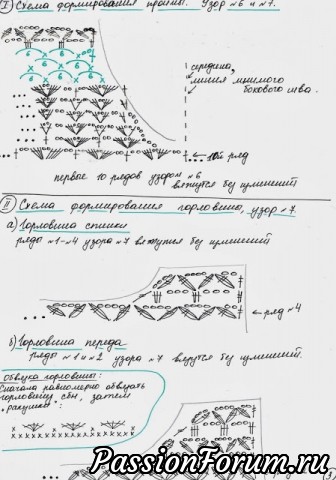 I) Схема формирования проймы. Узор №6 и №7.
середина,
линия мнимого
бокового шва.
← 10й ряд
первые 10 рядов узором №6
вяжутся без изменений
II) Схема формирования горловины, узор №7
а) Горловина спинки
ряды №1-4 узора №7 вяжутся без изменений
← ряд №4
б) Горловина переда
ряды №1 и №2 узора №7 вяжутся без изменений.
Обвязка горловины:
Сначала равномерно обвязать
горловину сбн, затем
"ракушки":
PassionForum.ru